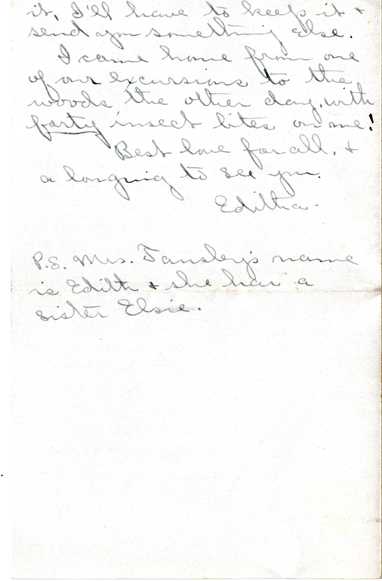 it, I'll have to keep it +
send you something else.
I came home from one
of our excursions to the
woods the other day, with
forty insect bites on me!
Best love for all, +
a longing to see you.
Editha.
P.S. Mrs. Tansley's name
is Edith + she has a
sister Elsie.